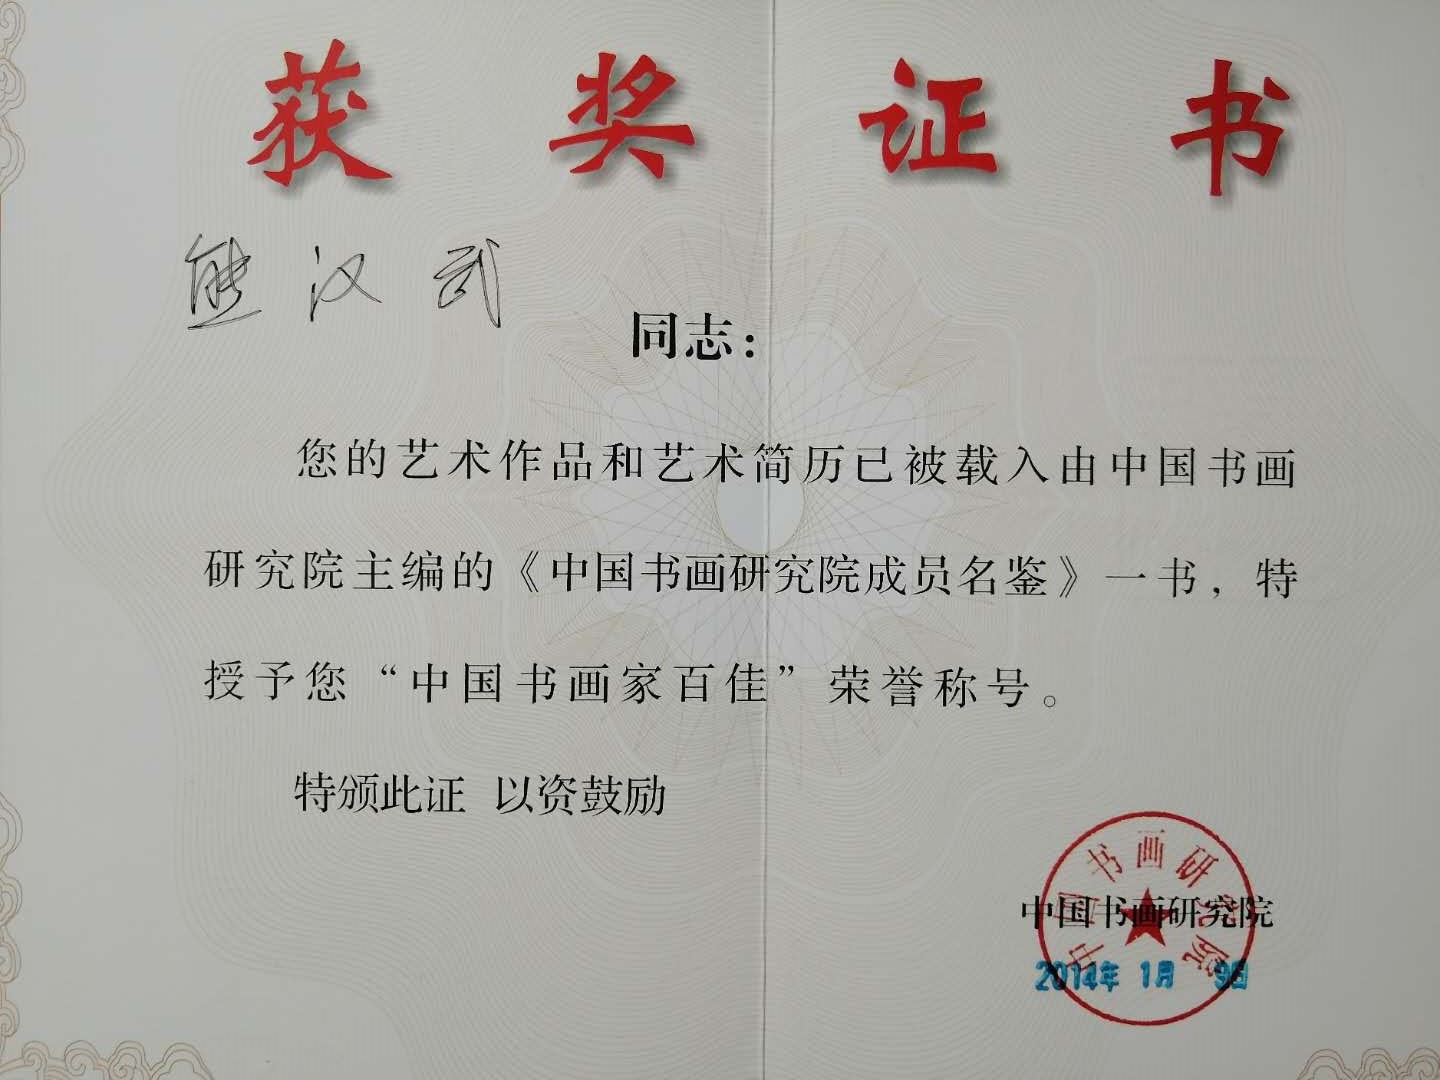 获奖证书
熊汉武
同志：
您的艺术作品和艺术简历已被载入由中国书画
研究院主编的《中国书画研究院成员名鉴》一书，特
授予您“中国书画家百佳”荣誉称号。
特颁此证 以资鼓励
中国书画研究院
中国书画研究院
2014年 1月 9日